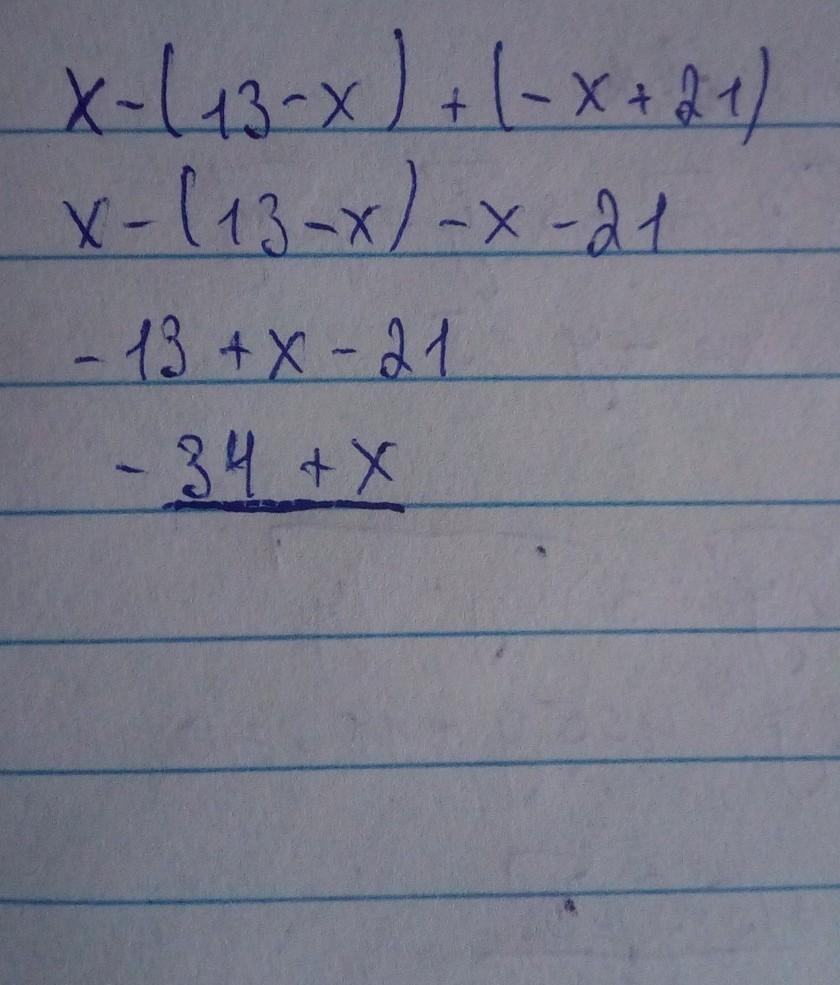 x-(13-x)+(-x+21)
x-(13-x)-x-21
-13+x-21
-34+x